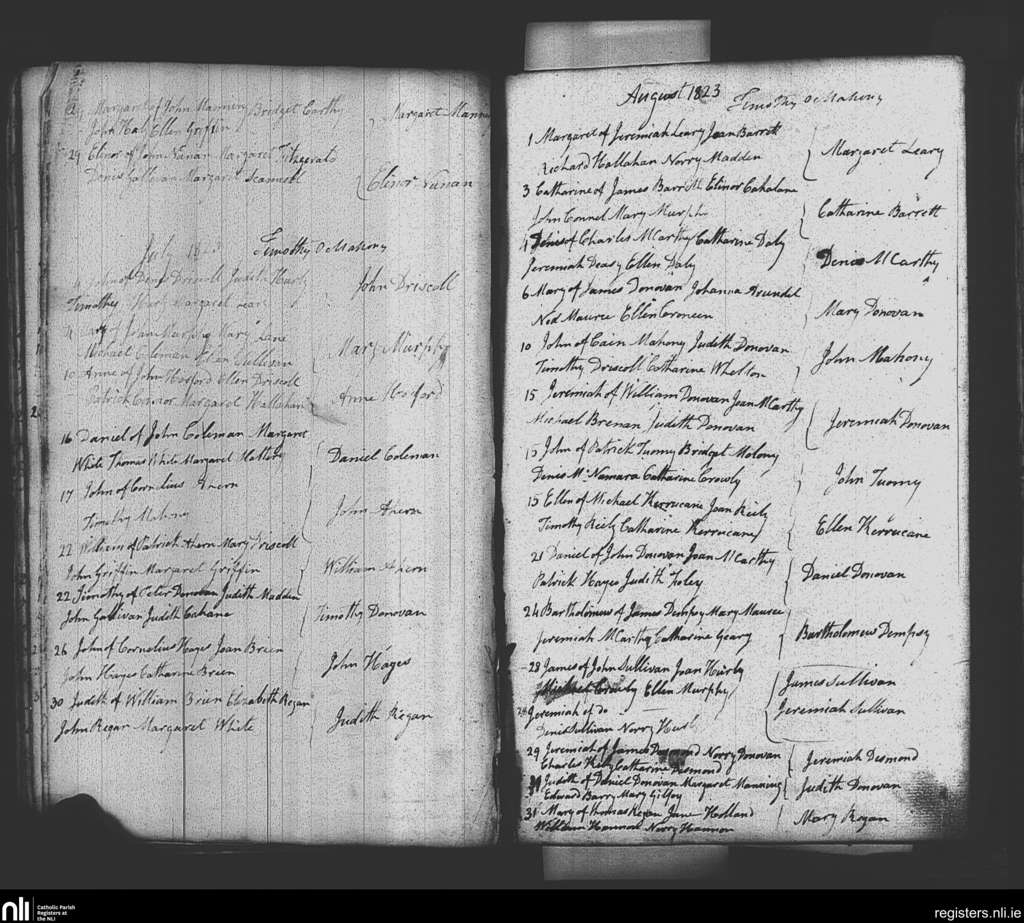 Margaret of John Manning Bridget Carthy
John Haly Ellen Griffin
Margaret Mannin
29 Elinor of John Nunan Margaret Fitzgerald
Denis Gallivan Margaret Scannell
Elinor Nunan
July 18 Timothy O Mahony
John of Denis Driscoll Judith Hurly
Timothy Margaret
John Driscoll
Mary of John Murphy Mary Lane
Michael Coleman Ellen Sullivan
Mary Murphy
10 Anne of John Hosford Ellen Driscoll
Patrick Connor Margaret Hallahan
Anne Hosford
16 Daniel of John Coleman Margaret
White Thomas White Margaret
Daniel Coleman
17 John of Cornelius Ahern
Timothy Mahony
John Ahern
22 William of Patrick Ahern Mary Driscoll
John Griffin Margaret Griffin
William Ahern
22 Timothy of Peter Donovan Judith Madden
John Gallivan Judith Cahane
Timothy Donovan
26 John of Cornelius Hayes Joan Breen
John Hayes Catharine Breen
John Hayes
30 Judith of William Brien Elizabeth Regan
John Regan Margaret White
Judith Regan
August 1823 Timothy O Mahony
1 Margaret of Jeremiah Leary Joan Barrett
Richard Hallahan Norry Madden
Margaret Leary
3 Catharine of James Barrett Elinor Cahalane
John Connel Mary Murphy
Catharine Barrett
4 Denis of Charles McCarthy Catharine Daly
Jeremiah Deasy Ellen Daly
Denis McCarthy
6 Mary of James Donovan Johanna Arundel
Ned Maurice Ellen Croneen
Mary Donovan
10 John of Cain Mahony Judith Donovan
Timothy Driscoll Catharine Whelton
John Mahony
15 Jeremiah of William Donovan Joan McCarthy
Michael Brenan Judith Donovan
Jeremiah Donovan
15 John of Patrick Tuomy Bridget Molony
Denis McNamara Catharine Crowly
John Tuomy
15 Ellen of Michael Kerrucane Joan Keily
Timothy Keily Catharine Kerrucane
Ellen Kerrucane
21 Daniel of John Donovan Joan McCarthy
Patrick Hayes Judith Foley
Daniel Donovan
24 Bartholomew of James Dempsy Mary Maurice
Jeremiah McCarthy Catharine Geary
Bartholomew Dempsy
28 James of John Sullivan Joan Hurly
Michael Crowly Ellen Murphy
James Sullivan
28 Jeremiah of do
Denis Sullivan Norry Hurly
Jeremiah Sullivan
29 Jeremiah of James Desmond Norry Donovan
Charles Keily Catharine Desmond
Jeremiah Desmond
Judith of Daniel Donovan Margaret Manning
Edward Barry Mary Gilfoy
Judith Donovan
31 Mary of Thomas Regan Jane Holland
William Hannon Norry Hannon
Mary Regan
nli
Catholic Parish
Registers at
the NLI
registers.nli.ie